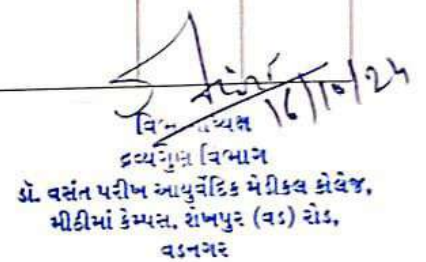 16/10/24
દ્રવ્યગુણ વિભાગ
ડૉ. વસંત પરીખ આયુર્વેદિક મેડીકલ કોલેજ,
મીઠીમાં કેમ્પસ, શેખપુર (વડ) રોડ,
વડનગર